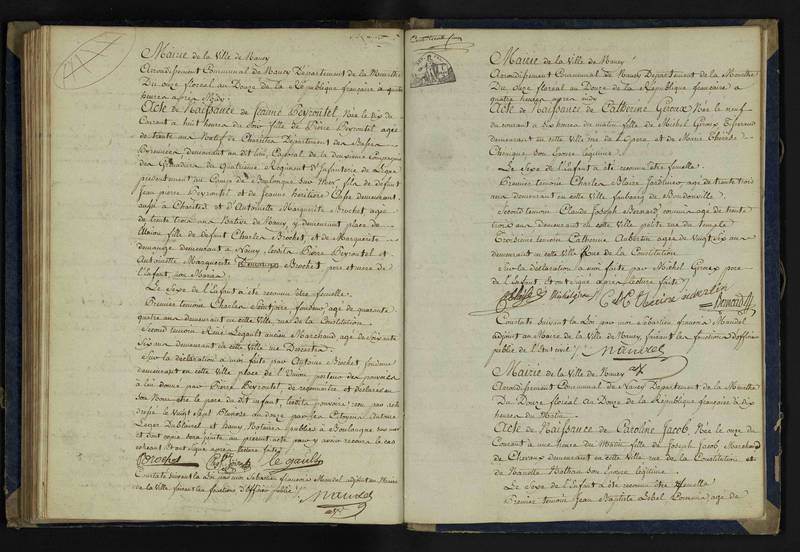 Mairie de la Ville de Nancy
Arrondissement Communal de Nancy Département de la Meurthe
Du onze floréal an Douze de la République française à quatre
heures après Midy
Acte de Naissance de Jeanne Peyroutel Née le dix du
Courant à huit heures du Soir fille de Pierre Peyroutel agé
de trente ans Natif de Département des Basses
Pyrennées, demeurant au dit lieu, Caporal de la deuxième Compagnie
des Grenadiers du Quatrième Régiment d'Infanterie de Ligne
présentement au Camp de Boulongne sur Mer, fils de défunt
Jean pierre Peyroutel et de Jeanne demeurant
aussi à et d'Antoinette Marguerite Brochet agée
de trente trois ans Native de Nancy y demeurant place de
fille de défunt Charles Brochet, et de Marguerite
demange demeurant à Nancy, lesdits Pierre Peyroutel et
Antoinette Marguerite Brochet père et mère de
l'Enfant, non Mariés
Le Sexe de l'Enfant a été reconnu être femelle.
Premier temoin Charles fondeur, agé de quarante
quatre ans demeurant en cette Ville, rue de la Constitution
Second temoin René Legault ancien Marchand, agé de Soixante
Six ans demeurant en cette Ville rue Descartes
Sur la déclaration à moi faite par Antoine Brochet fondeur
demeurant en cette Ville place de l'Union porteur des pouvoirs
à lui donné par Pierre Peyroutel, de reconnoître et déclarer en
Son Nom être le père du dit enfant, lesdits pouvoirs reçu par acte
dressé le Vingt Sept an douze par les Citoyens Antoine
et Notaires publics à Boulongne sur mer
et dont copie sera jointe au présent acte pour y avoir recours le cas
échéant et ont Signé après lecture faite
Brochet le gault
Constaté suivant la Loi par moi Sébastien françois Mandel adjoint au Maire
de la Ville faisant les fonctions d'officier public
Mandel
Mairie de la Ville de Nancy
Arrondissement Communal de Nancy Département de la Meurthe
Du Onze floréal an Douze de la République française à
quatre heures après midy
Acte de Naissance de Catherine Giroux Née le neuf
du courant à Six heures du matin, fille de Michel Giroux
demeurant en cette Ville rue de l'Opera et de Marie Thérèse
son Epouse légitime
Le Sexe de l'Enfant a été reconnu être femelle.
Premier temoin Charles Blaise Jardinier, agé de trente trois
ans demeurant en cette Ville faubourg de Boudonville
Second temoin Claude Joseph Bernard commis agé de trente
trois ans demeurant en cette Ville petite rue du temple
Troisième temoin Catherine Aubertin agée de Vingt Six ans
demeurant en cette Ville Rue de la Constitution
Sur la déclaration à moi faite par Michel Giroux père
de l'Enfant et ont signé après lecture faite
Bernard
Constaté suivant la Loi par moi Sébastien françois Mandel
adjoint au Maire de la Ville de Nancy, faisant les fonctions d'officier
public de l'Etat civil
Mandel
Mairie de la Ville de Nancy
Arrondissement Communal de Nancy Département de la Meurthe
Du Douze floréal an Douze de la République française à dix
heures du Matin
Acte de Naissance de Caroline Jacob Née le onze du
Courant à une heure du Matin fille de Joseph Jacob Marchand
de Chevaux demeurant en cette Ville rue de la Constitution et
de son Epouse légitime
Le Sexe de l'Enfant a été reconnu être femelle
Premier temoin Jean Baptiste agé de